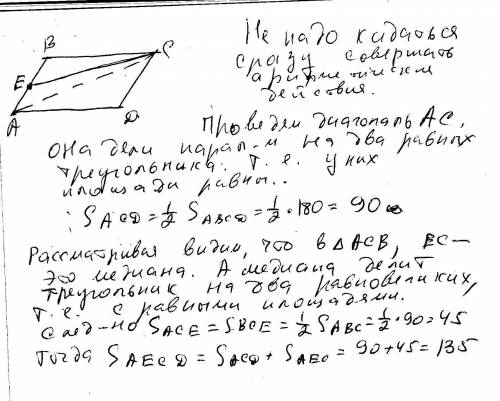 B
C
E
A
D
Не надо кидаться
сразу совершать
арифметические
действия.
Проведём диагональ AC.
Она дели парал-м на два равных
треугольника. Т.е. у них
площади равны..
: S ACD = 1/2 S ABCD = 1/2 · 180 = 90
Рассматривая видим, что в Δ ACB, EC –
это медиана. А медиана делит
треугольник на два равновеликих,
т.е. с равными площадями.
След-но S ACE = S BCE = 1/2 S ABC = 1/2 · 90 = 45
Тогда S AECD = S ACD + S AEC = 90 + 45 = 135